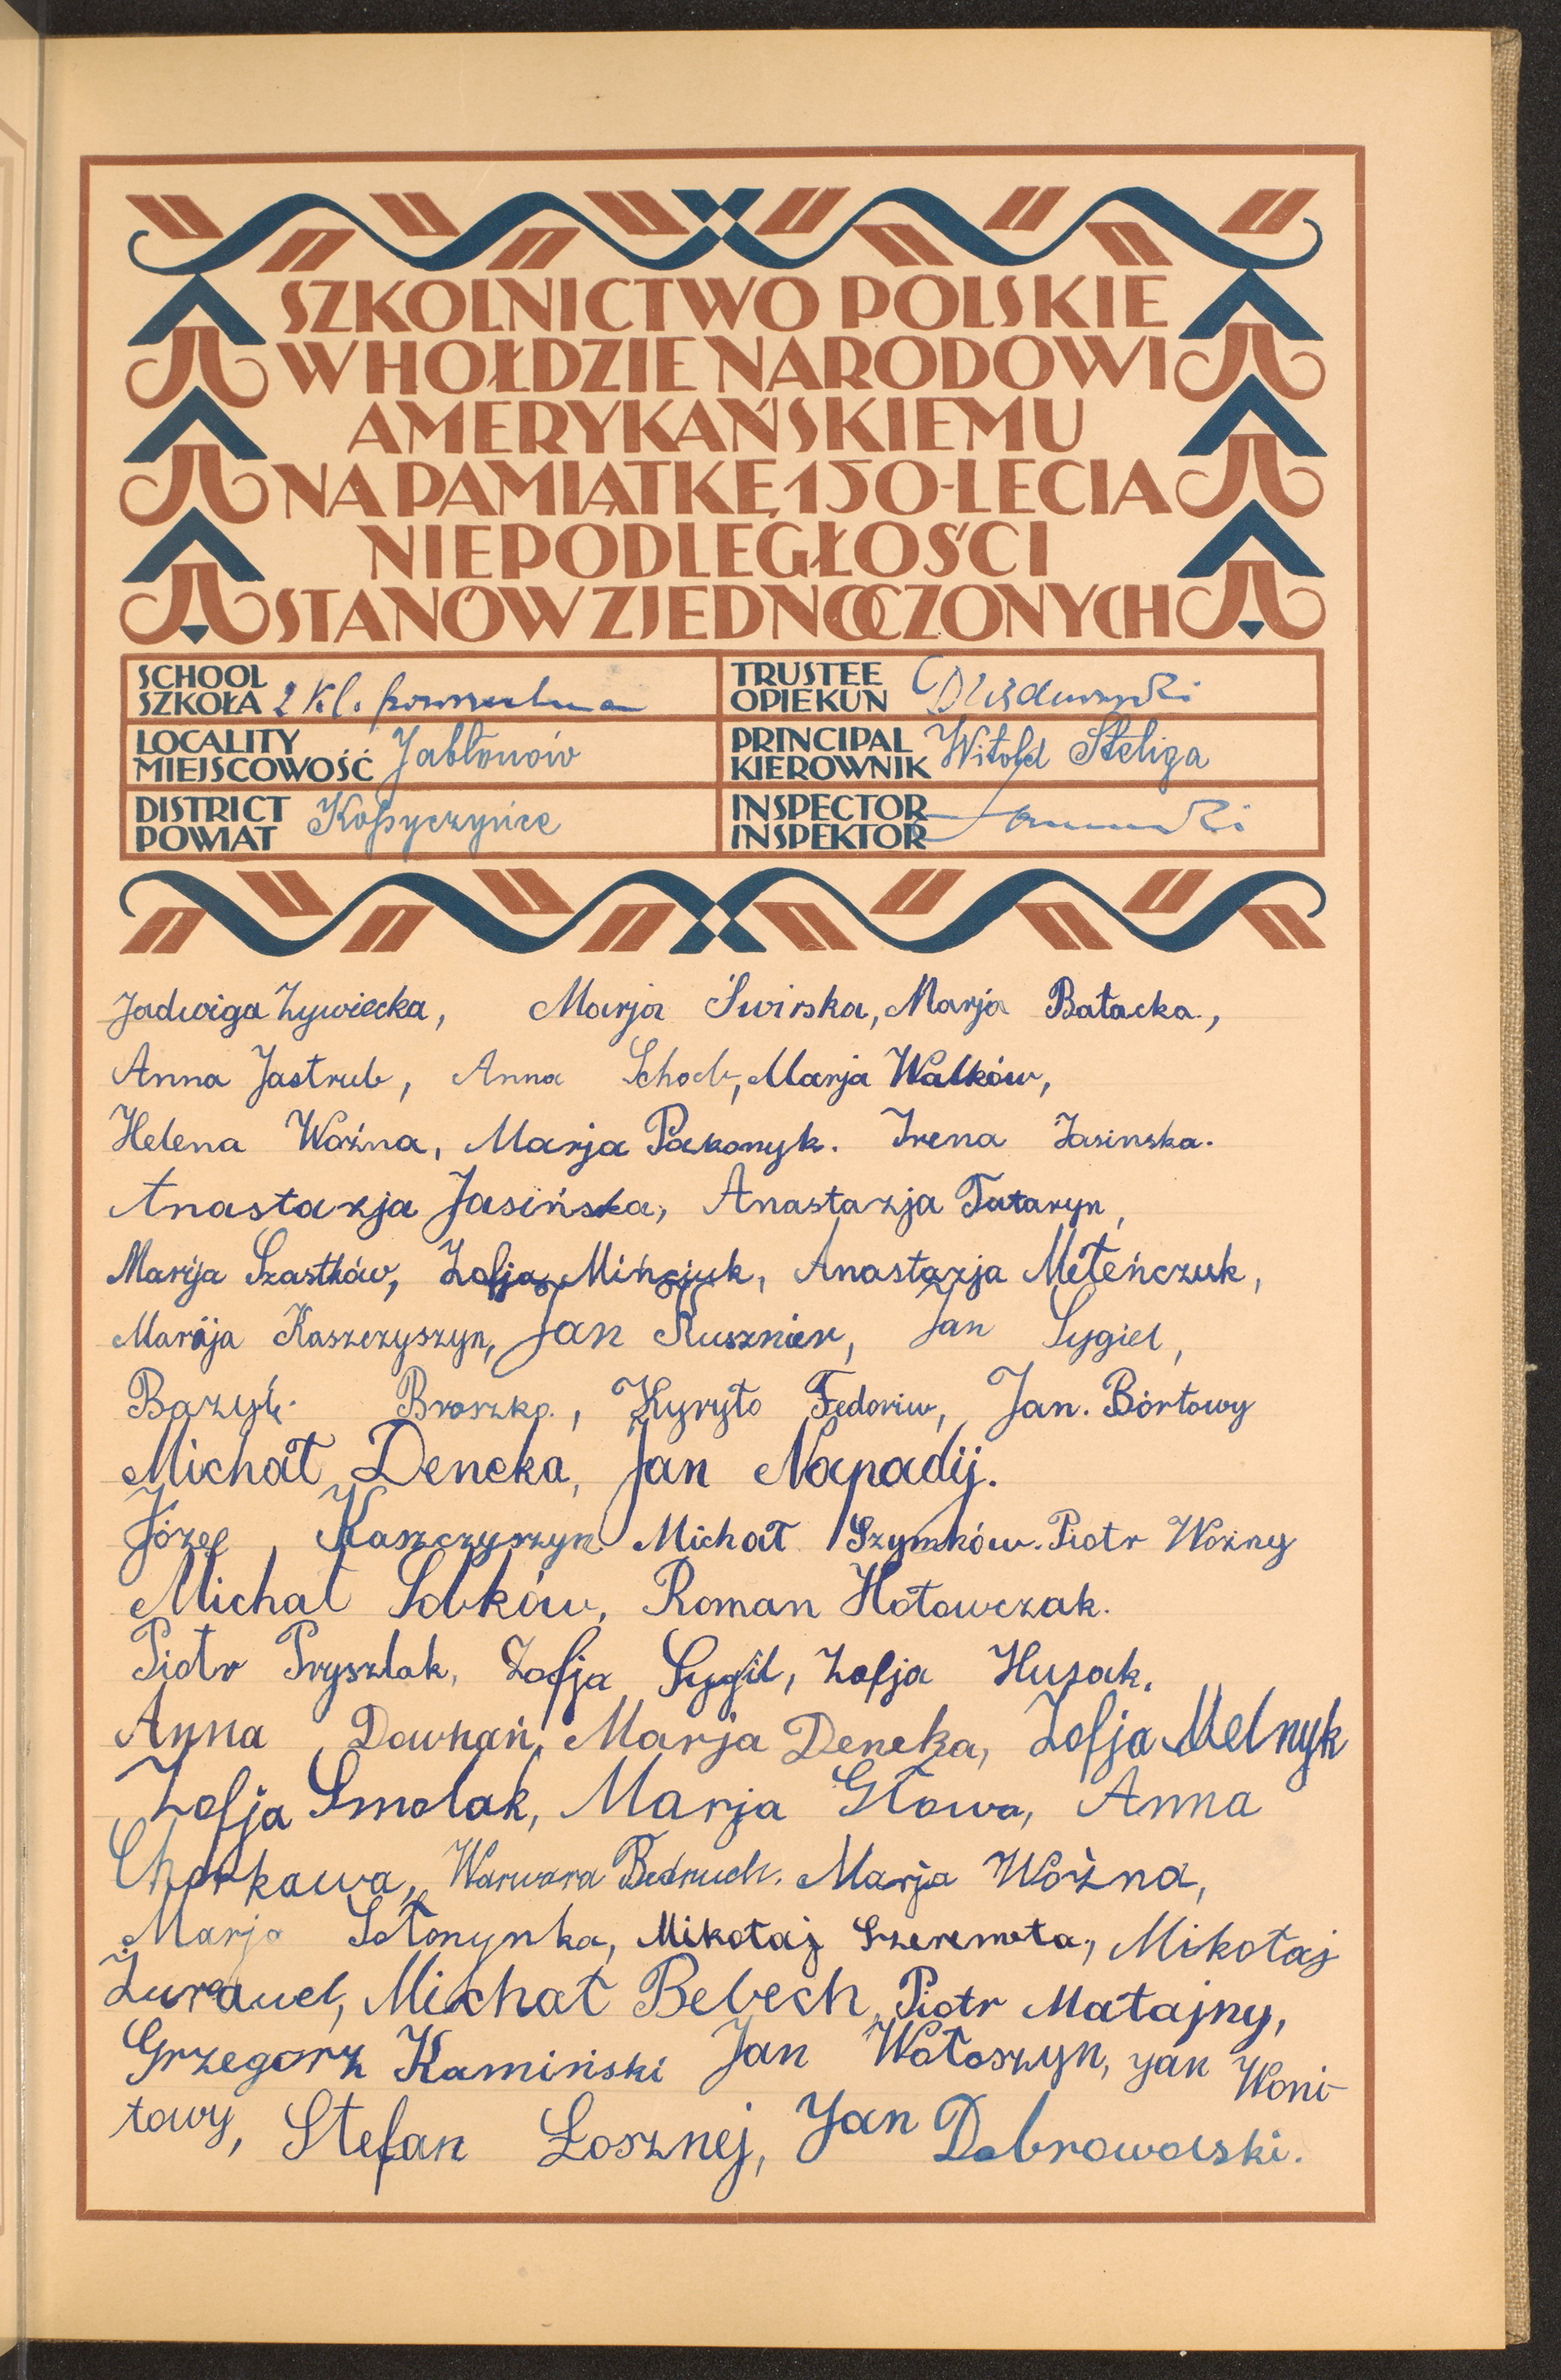 SZKOLNICTWO POLSKIE
W HOŁDZIE NARODOWI
AMERYKAŃSKIEMU
NA PAMIĄTKĘ 150-LECIA
NIEPODLEGŁOŚCI
STANÓW ZJEDNOCZONYCH
SCHOOL
SZKOŁA 2 kl. powszechna
TRUSTEE
OPIEKUN
LOCALITY
MIEJSCOWOŚĆ Jabłonów
PRINCIPAL
KIEROWNIK Witold Steliga
DISTRICT
POWIAT Kopyczyńce
INSPECTOR
INSPEKTOR
Jadwiga Żywiecka, Marja Świrska, Marja Batacka.,
Anna Jastrub, Anna Schab, Marja Walków,
Helena Woźna, Marja Pakonyk. Irena Jasinska.
Anastazja Jasińska, Anastazja Tataryn,
Marija Szastków, Zofja Mińciuk, Anastazja Meteńczuk,
Marija Kaszczyszyn, Jan Kusznier, Jan Sygiel,
Bazyli Broszko., Kyryło Fedoriw, Jan. Bórtowy
Michał Deneka, Jan Napadij.
Józef, Kaszczyszyn Michał Szymków. Piotr Woźny
Michał Sobków, Roman Hołowczak.
Piotr Pryszlak, Zofja Sygil, Zofja Husak.
Anna Dowhań, Marja Deneka, Zofja Melnyk
Zofja Smolak, Marja Głowa, Anna
Chorkawa, Warwara Bedruch. Marja Woźna,
Marja Sołonynka, Mikołaj Szeremeta, Mikołaj
Żurawel, Michał Bebech, Piotr Matajny,
Grzegorz Kamiński Jan Wołoszyn, Jan Woni-
towy, Stefan Łosznej, Jan Dobrowolski.